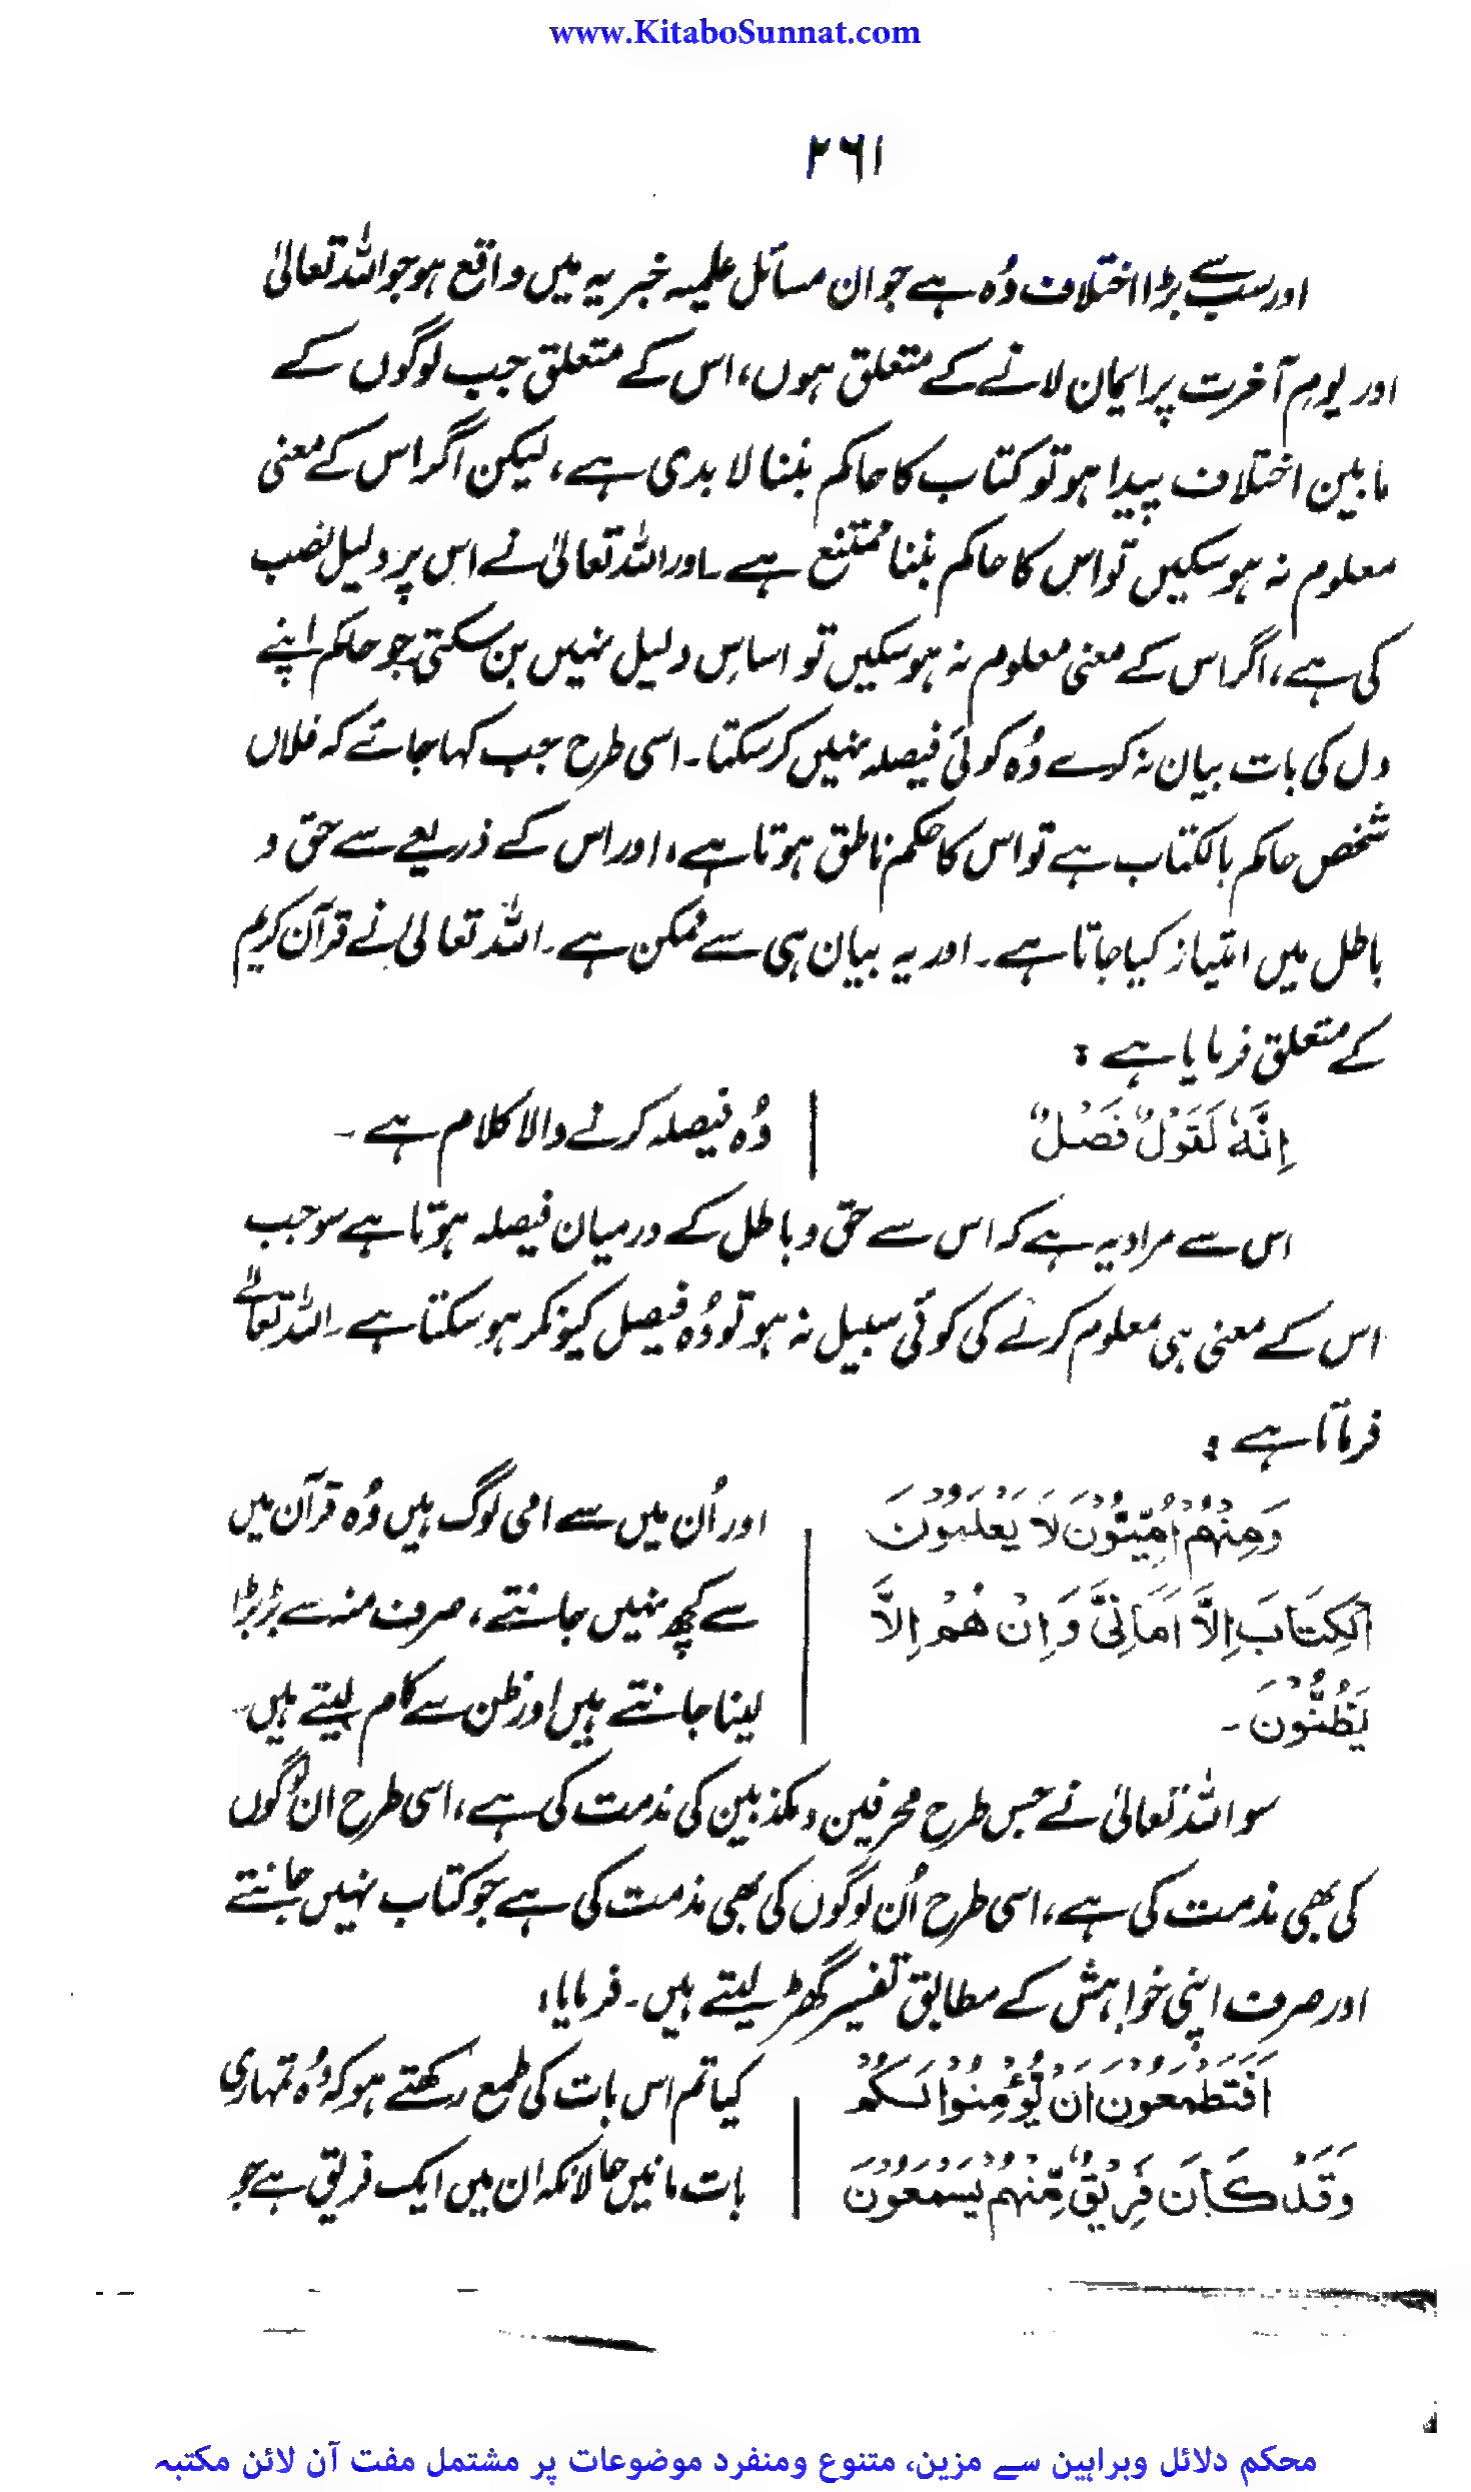 www.KitaboSunnat.com
۲۶۱
اور سب سے بڑا اختلاف وُہ ہے جو ان مسائل علمیہ خبریہ میں واقع ہو جو اللہ تعالیٰ
اور یومِ آخرت پر ایمان لانے کے متعلق ہوں، اس کے متعلق جب لوگوں کے
مابین اختلاف پیدا ہو تو کتاب کا حاکم بننا لابدی ہے، لیکن اگر اس کے معنی
معلوم نہ ہو سکیں تو اس کا حاکم بننا ممتنع ہے۔ اور اللہ تعالیٰ نے اس پر دلیل نصب
کی ہے، اگر اس کے معنی معلوم نہ ہو سکیں تو اساسِ دلیل نہیں بن سکتی، جو حاکم اپنے
دل کی بات بیان نہ کرے وُہ کوئی فیصلہ نہیں کر سکتا۔ اسی طرح جب کہا جائے کہ فلاں
شخص حاکم بالکتاب ہے تو اس کا حکم ناطق ہوتا ہے، اور اس کے ذریعے سے حق و
باطل میں امتیاز کیا جاتا ہے۔ اور یہ بیان ہی سے ممکن ہے۔ اللہ تعالیٰ نے قرآن کریم
کے متعلق فرمایا ہے :
اِنَّہٗ لَقَوْلٌ فَصْلٌ
وُہ فیصلہ کرنے والا کلام ہے ۔
اس سے مراد یہ ہے کہ اس سے حق و باطل کے درمیان فیصلہ ہوتا ہے سو جب
اس کے معنی ہی معلوم کرنے کی کوئی سبیل نہ ہو تو وُہ فیصل کیونکر ہو سکتا ہے ۔ اللہ تعالےٰ
فرماتا ہے :
وَمِنْہُمْ اُمِّیُّوْنَ لَا یَعْلَمُوْنَ
الْکِتَابَ اِلَّا اَمَانِیَّ وَاِنْ ھُمْ اِلَّا
یَظُنُّوْنَ ۔
اور اُن میں سے امی لوگ ہیں وُہ قرآن میں
سے کچھ نہیں جانتے، صرف منہ سے بڑبڑا
لینا جانتے ہیں اور ظن سے کام لیتے ہیں۔
سو اللہ تعالیٰ نے جس طرح محرفین و مکذبین کی مذمت کی ہے، اسی طرح ان لوگوں
کی بھی مذمت کی ہے، اسی طرح اُن لوگوں کی بھی مذمت کی ہے جو کتاب نہیں جانتے
اور صرف اپنی خواہش کے مطابق تفسیر گھڑ لیتے ہیں۔ فرمایا:
اَفَتَطْمَعُوْنَ اَنْ یُّؤْمِنُوْا لَکُمْ
وَقَدْ کَانَ فَرِیْقٌ مِّنْہُمْ یَسْمَعُوْنَ
کیا تم اس بات کی طمع رکھتے ہو کہ وُہ تمہاری
بات مانیں حالانکہ ان میں ایک فریق ہے جو
محکم دلائل وبراہین سے مزین، متنوع ومنفرد موضوعات پر مشتمل مفت آن لائن مکتبہ